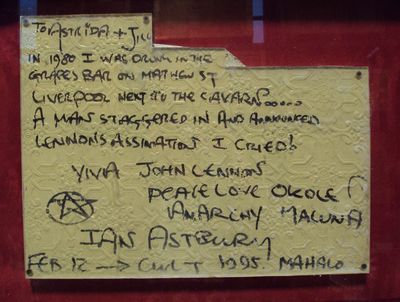 TO ASTRIDA + JILL
IN 1980 I WAS DRUNK IN THE
GRAPES BAR ON MATHEW ST
LIVERPOOL NEXT TO THE CAVARN.....
A MAN STAGGERED IN AND ANNOUNCED
LENNONS ASSINATION I CRIED!
VIVA JOHN LENNON
PEACE LOVE OKOLE
ANARCHY MALUNA
IAN ASTBURY
FEB 12 → CULT 1995. MAHALO